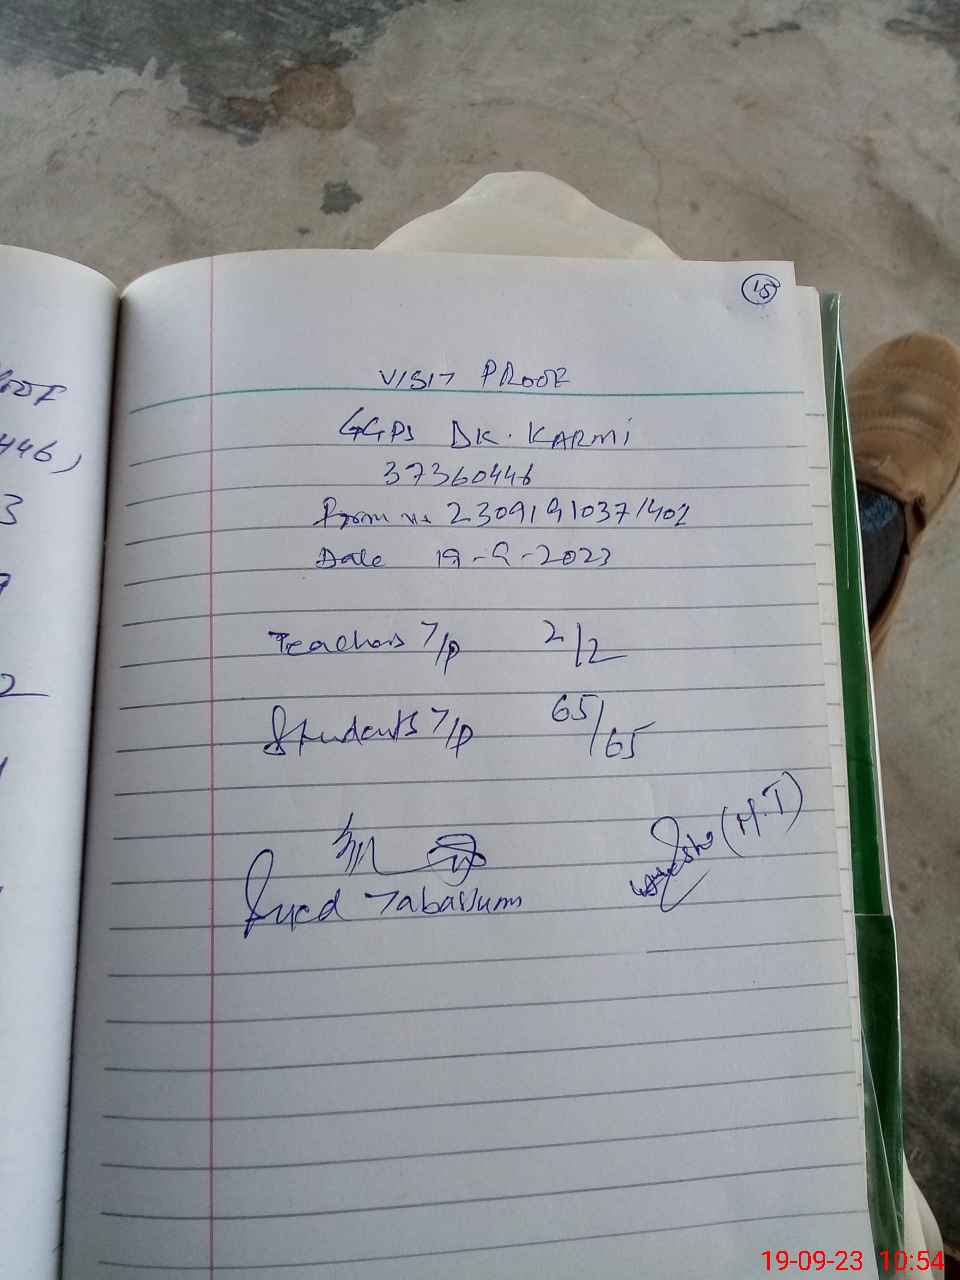 15
VISIT PROOF
GGPS DK. KARMI
37360446
Form no 23091910371402
Date 19-9-2023
Teachers T/P 2/2
Students T/P 65/65
Syed Tabassum
Ayesha (M.T)
OOF
446)
3
9
2
19-09-23 10:54